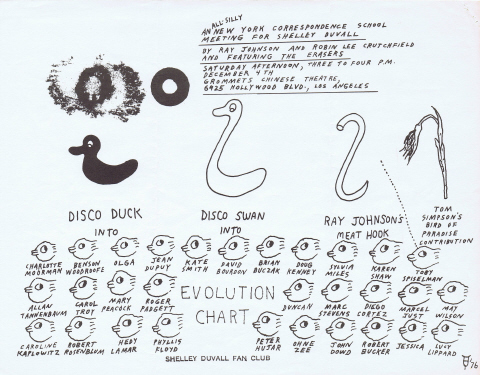 ALL-SILLY
AN NEW YORK CORRESPONDENCE SCHOOL
MEETING FOR SHELLEY DUVALL
BY RAY JOHNSON AND ROBIN LEE CRUTCHFIELD
AND FEATURING THE ERASERS
SATURDAY AFTERNOON, THREE TO FOUR P.M.
DECEMBER 4TH
GROMMETS CHINESE THEATRE,
6925 HOLLYWOOD BLVD., LOS ANGELES
DISCO DUCK
INTO
DISCO SWAN
INTO
RAY JOHNSON'S
MEAT HOOK
TOM
SIMPSON'S
BIRD OF
PARADISE
CONTRIBUTION
CHARLOTTE
MOORMAN
BENSON
WOODROOFE
OLGA
JEAN
DUPUY
KATE
SMITH
DAVID
BOURDON
BRIAN
BUCZAK
DOUG
KENNEY
SYLVIA
MILES
KAREN
SHAW
TOBY
SPISELMAN
ALLAN
TANNENBAUM
CAROL
TROY
MARY
PEACOCK
ROGER
PADGETT
EVOLUTION
CHART
DUNCAN
MARC
STEVENS
DIEGO
CORTEZ
MARCEL
JUST
MAY
WILSON
CAROLINE
KAPLOWITZ
ROBERT
ROSENBLUM
HEDY
LAMAR
PHYLLIS
FLOYD
PETER
HUJAR
OHNE
ZEE
JOHN
DOWD
ROBERT
BUCKER
JESSICA
LUCY
LIPPARD
SHELLEY DUVALL FAN CLUB
'76